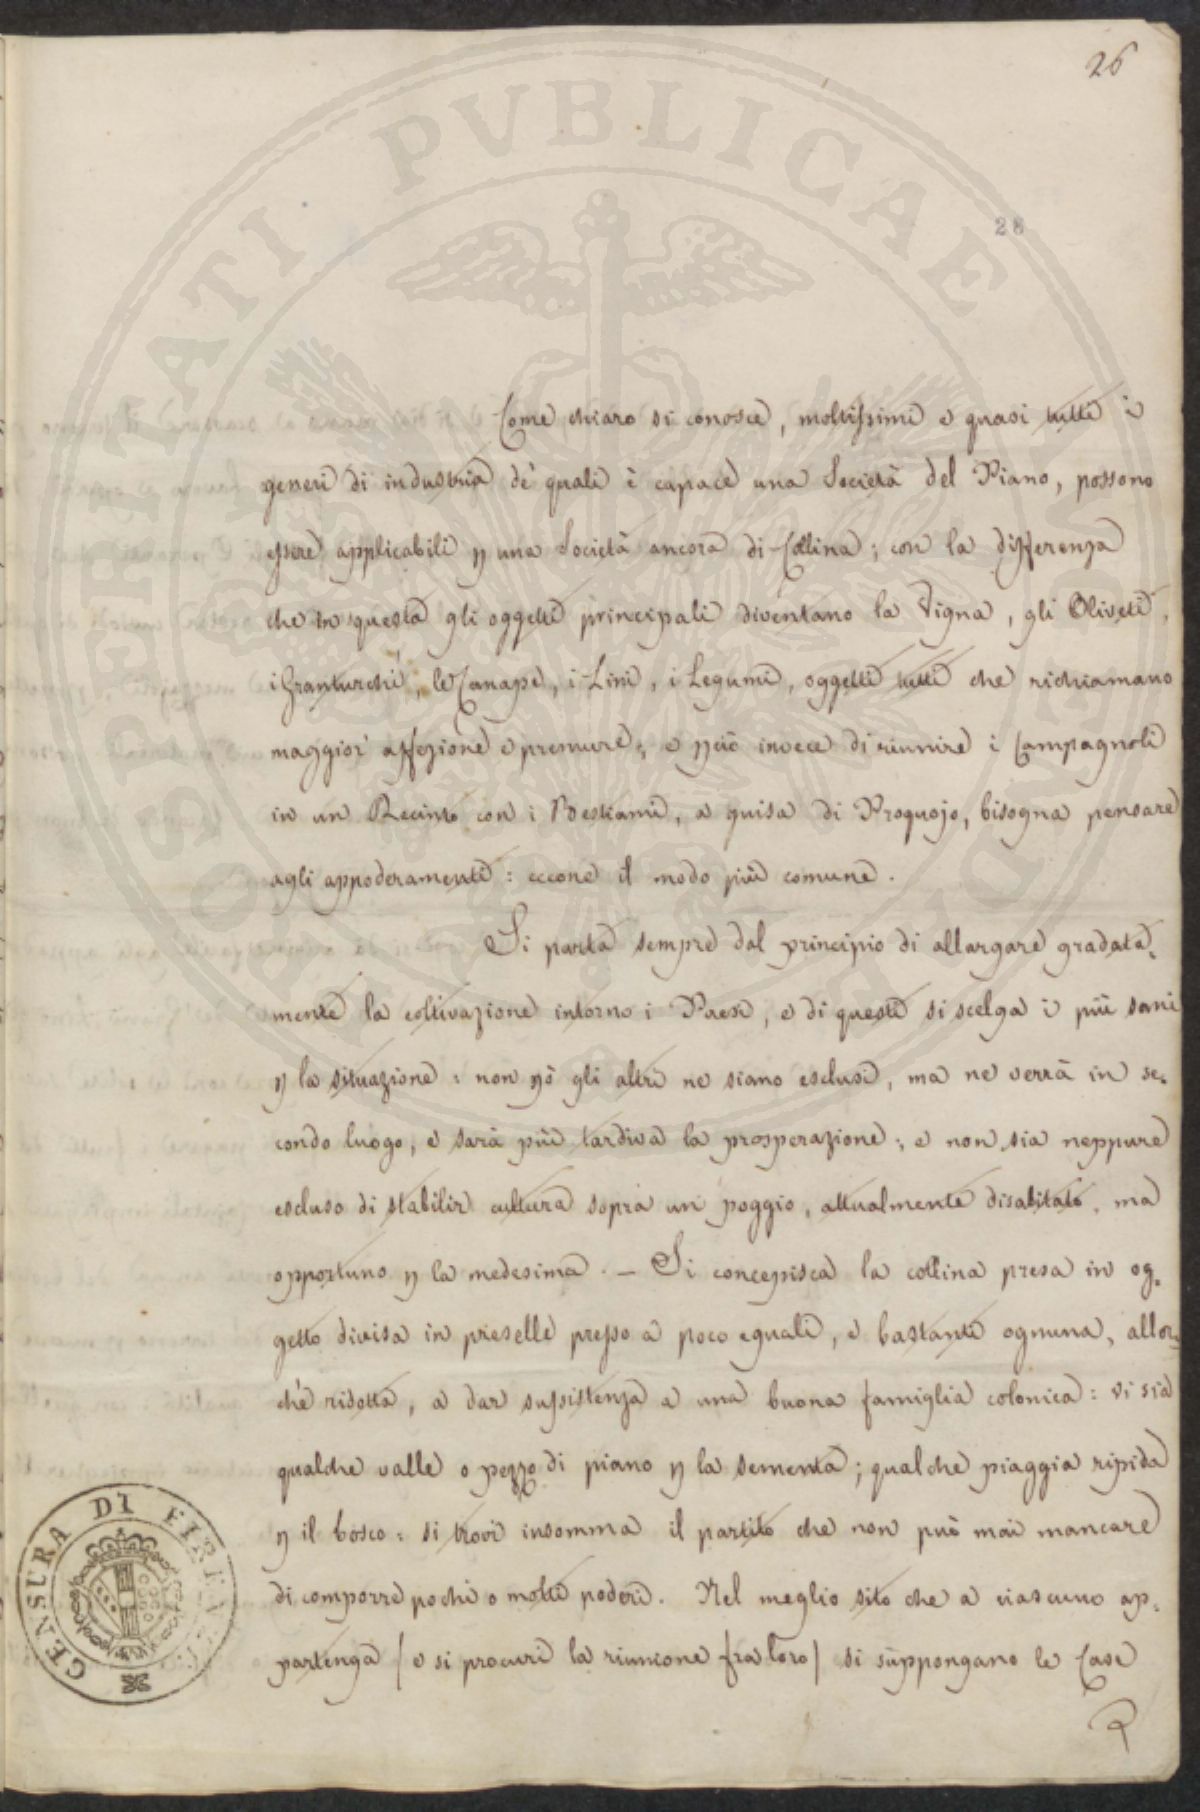 26
28
Come chiaro si conosce, moltissimi e quasi tutti i
generi di industria de' quali è capace una Società del Piano, possono
essere applicabili p una Società ancora di Collina; con la differenza
che in questa gli oggetti principali diventano la Vigna, gli Oliveti,
i Granturchi, le Canape, i Lini, i Legumi, oggetti tutti che richiamano
maggior affezione e premure; e pciò invece di riunire i Campagnoli
in un Recinto con i Bestiami, a guisa di Proquojo, bisogna pensare
agli appoderamenti: eccone il modo più comune.
Si parta sempre dal principio di allargare gradata-
mente la coltivazione intorno i Paesi, e di questi si scelga i più sani
p la situazione: non pò gli altri ne siano esclusi, ma ne verrà in se-
condo luogo, e sarà più tardiva la prosperazione; e non sia neppure
escluso di stabilir cultura sopra un poggio, attualmente disabitato, ma
opportuno p la medesima. – Si concepisca la collina presa in og-
getto divisa in preselle presso a poco eguali, e bastanti ognuna, allor-
chè ridotta, a dar sussistenza a una buona famiglia colonica: vi sia
qualche valle o pezzo di piano p la sementa; qualche piaggia ripida
p il bosco: si trovi insomma il partito che non può mai mancare
di comporre pochi o molti poderi. Nel meglio sito che a ciascuno ap-
partenga (e si procuri la riunione fra loro) si suppongano le Case
CENSURA DI FIRENZE
PROSPERITATI PVBLICAE